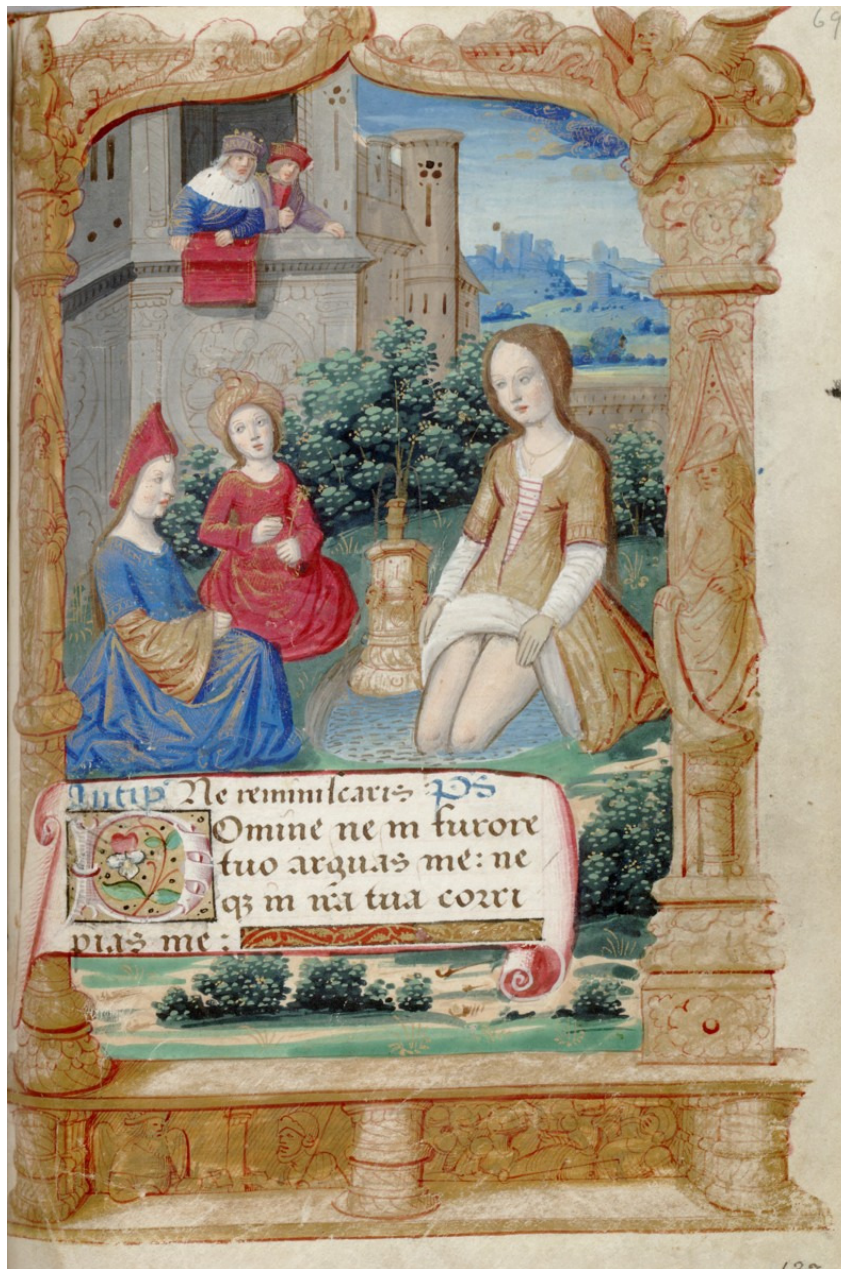 69
Antip. Ne reminiscaris Ps
Domine ne in furore
tuo arguas me: ne
qȝ in ir̃a tua corri
pias me: